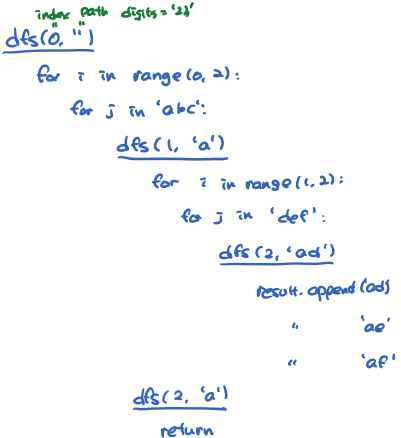 index path digits = '23'
dfs(0, '')
for i in range(0, 2):
for j in 'abc':
dfs(1, 'a')
for i in range(1, 2):
for j in 'def':
dfs(2, 'ad')
result.append('ad')
" 'ae'
" 'af'
dfs(2, 'a')
return